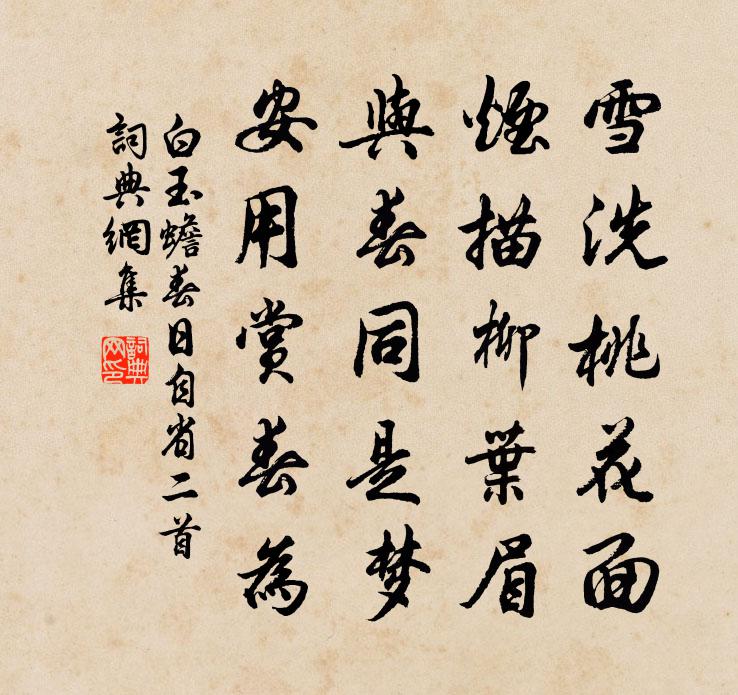 雪洗桃花面
煙描柳葉眉
與春同是梦
安用賞春為
白玉蟾春日自省二首
詞典網集
詞典網印